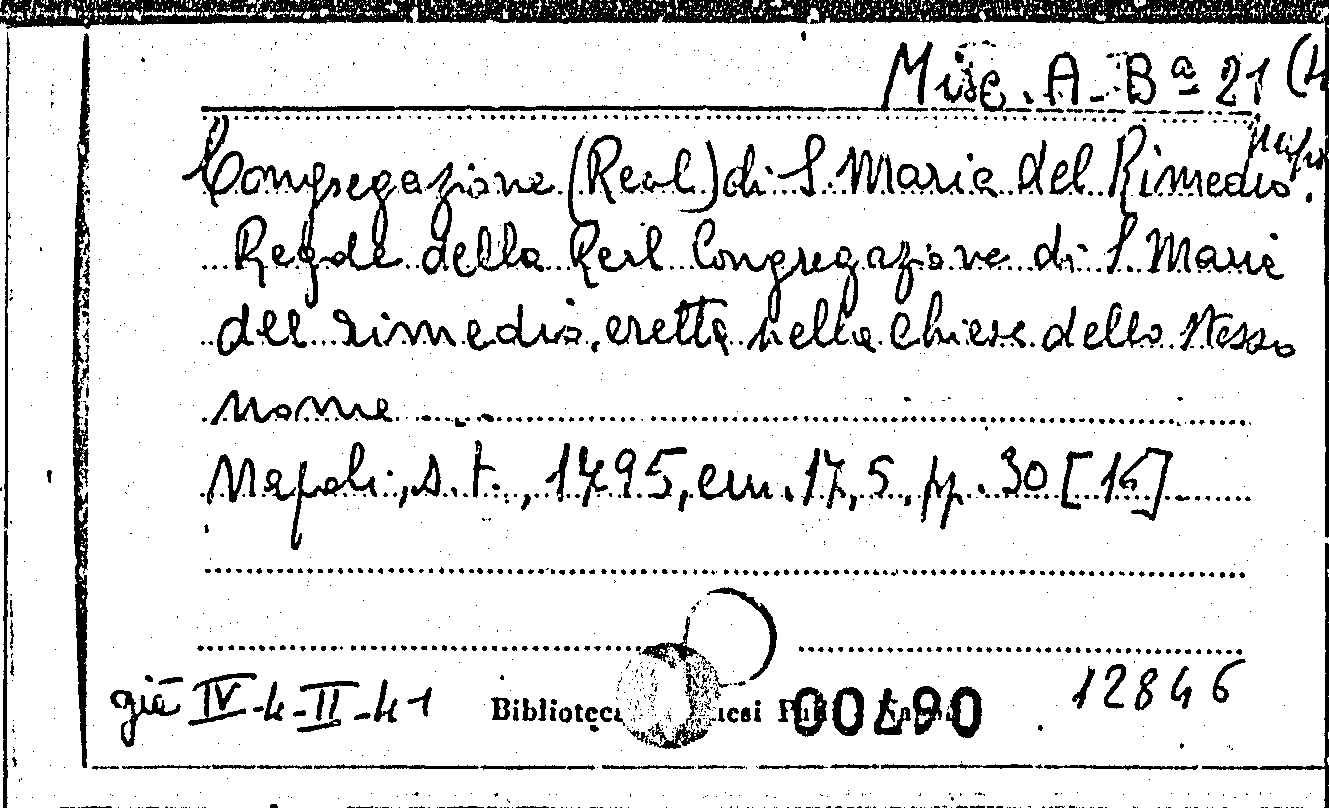 Misc. A. Bª 21 (4
Congregazione (Real) di S. Maria del Rimedio.
Regole della Real Congregazione di S. Maria
del rimedio, eretta nella Chiesa dello stesso
nome ....
Napoli, s.t., 1795, cm. 17,5, pp. 30 [16]
già IV-4-II-41
Biblioteca
00790
12846